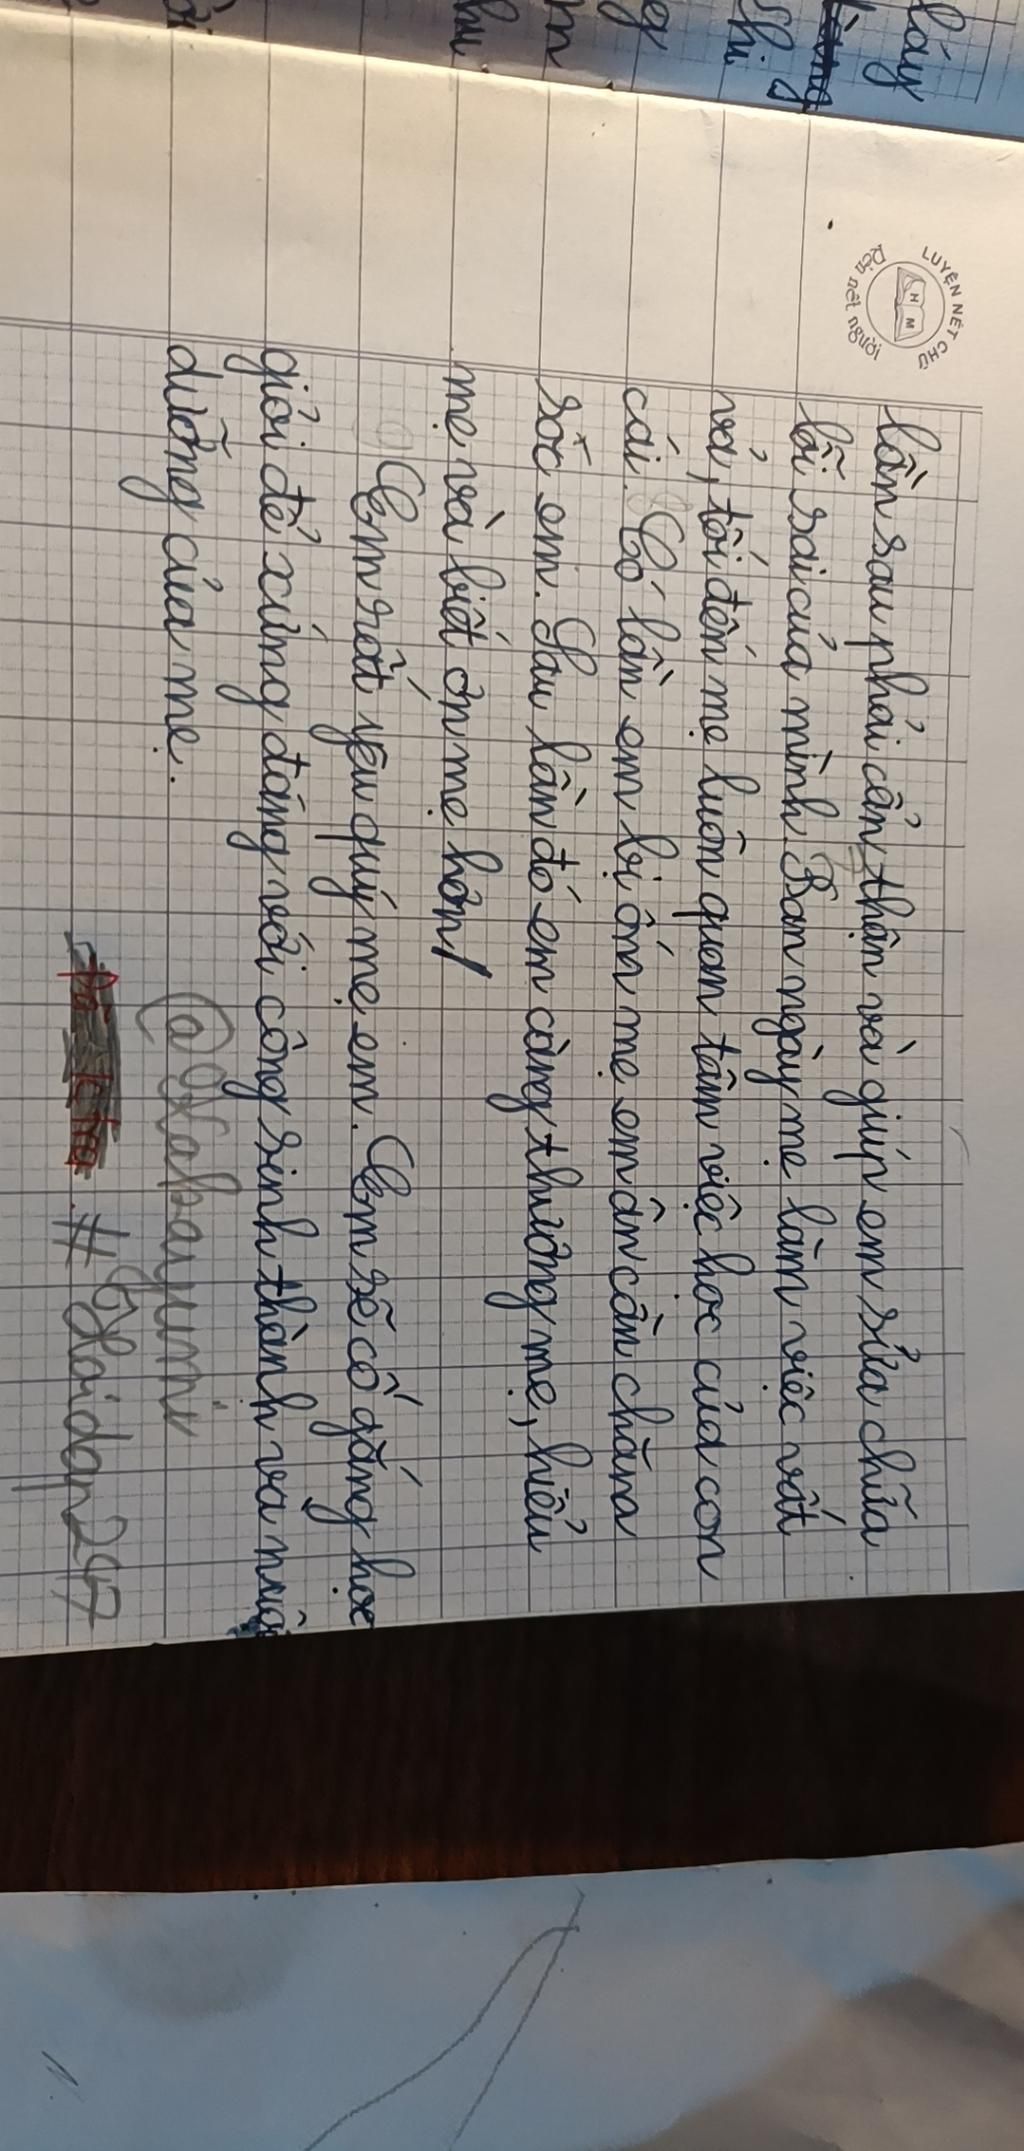 láy
thi g
eg
m
hu
LUYỆN NÉT CHỮ
Rèn nết người
H M
lần sau phải cẩn thận và giúp em sửa chữa
lỗi sai của mình. Ban ngày mẹ làm việc vất
vả, tối đến mẹ luôn quan tâm việc học của con
cái. Có lần em bị ốm mẹ em ân cần chăm
sóc em. Sau lần đó em càng thương mẹ, hiểu
mẹ và biết ơn mẹ hơn!
Em rất yêu quý mẹ em. Em sẽ cố gắng học
giỏi để xứng đáng với công sinh thành và nuôi
dưỡng của mẹ.